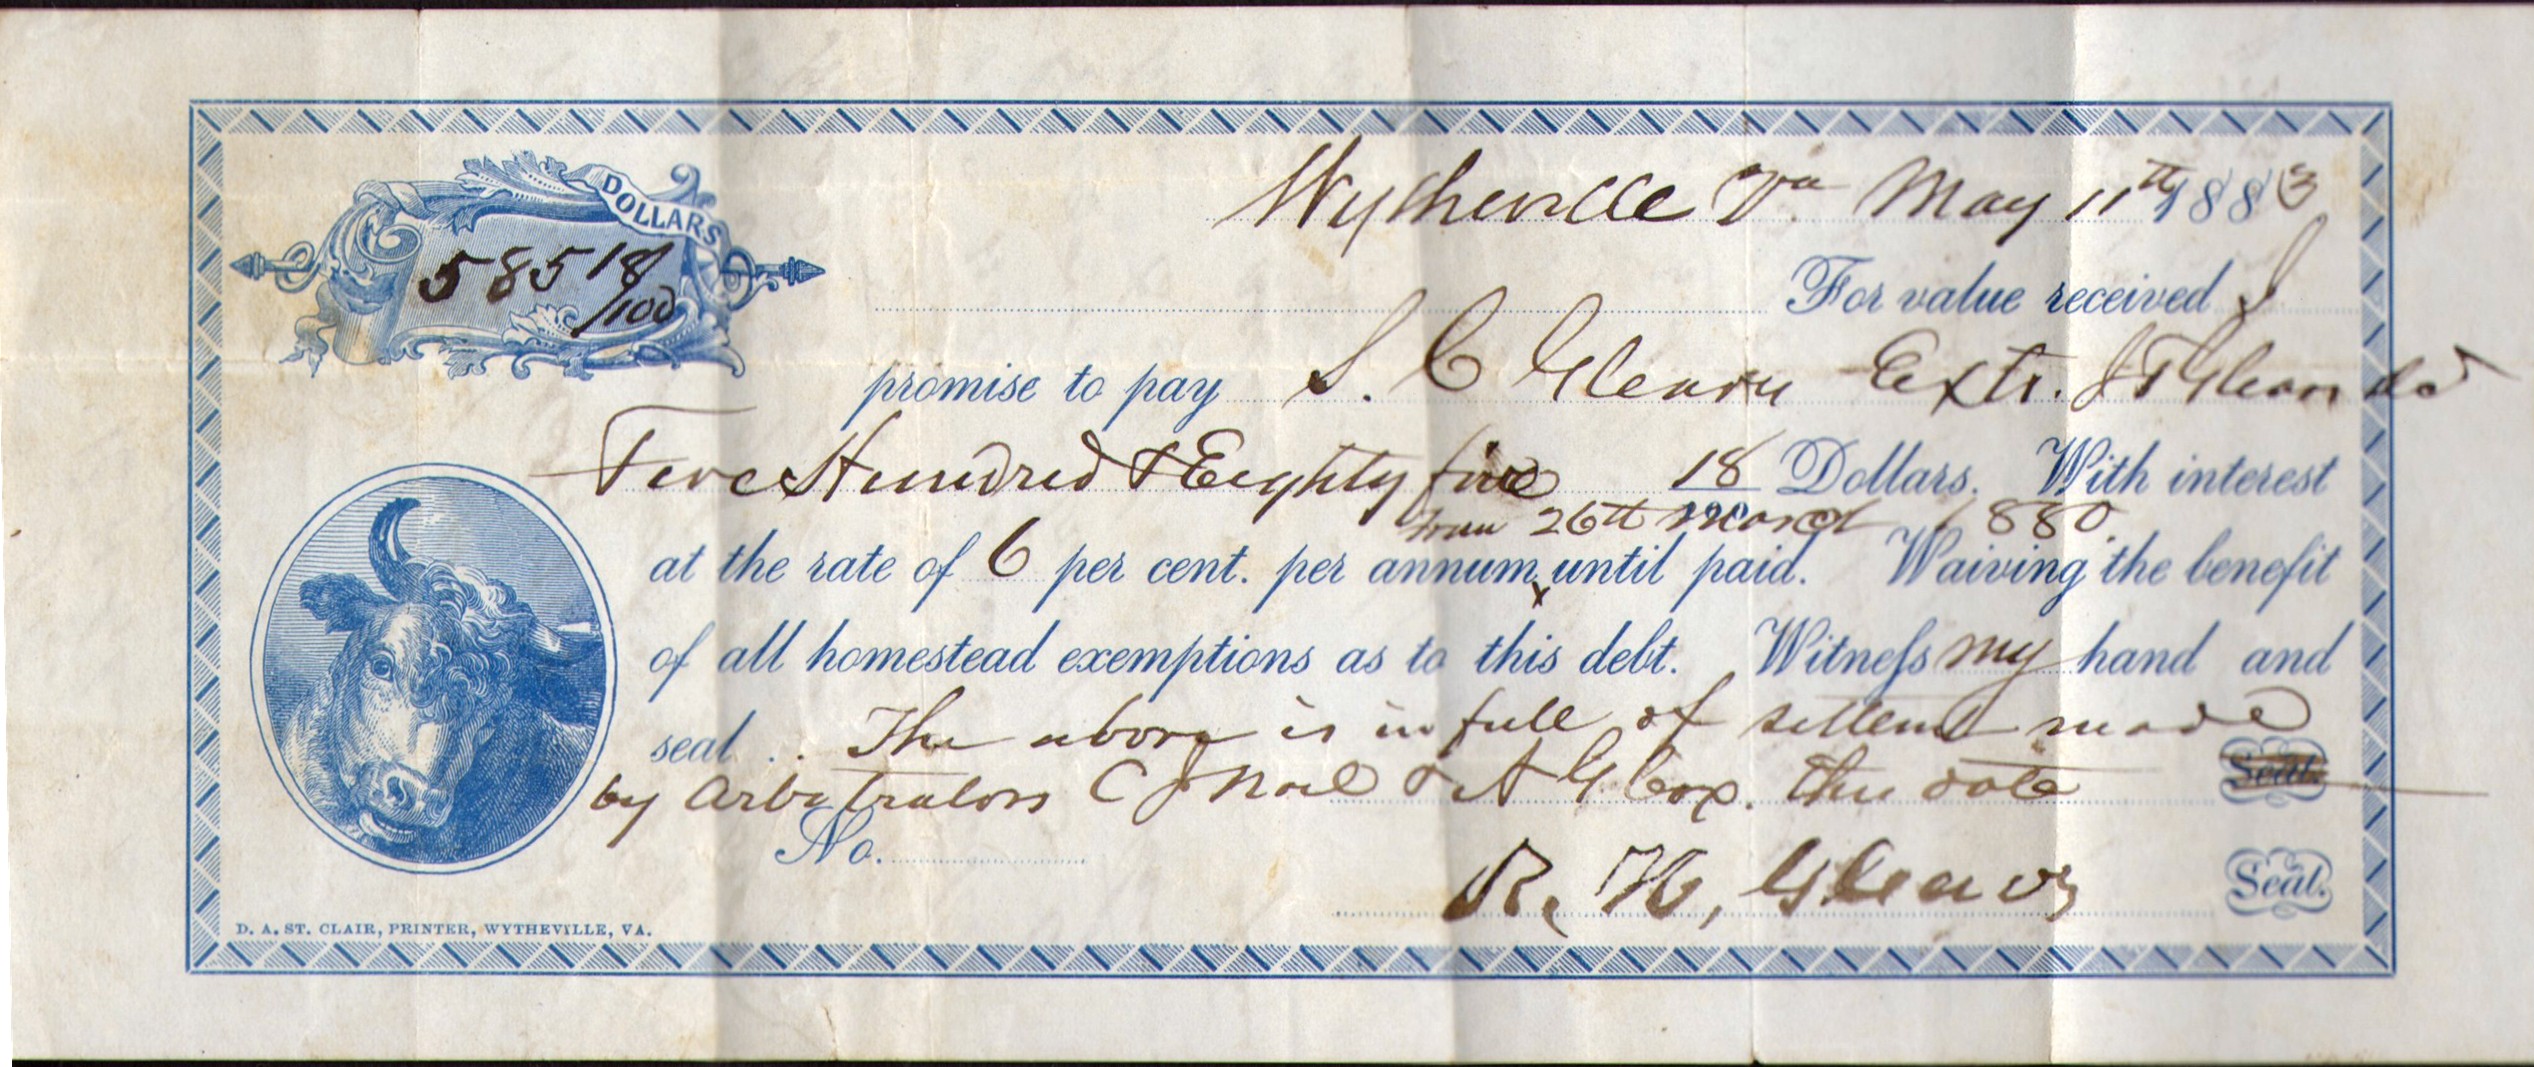 Wytheville Va May 11th 1883
DOLLARS
585 18/100
For value received I
promise to pay S. C Gleaves Extr. J T Gleaves decd
Five Hundred & Eighty five 18/100 Dollars. With interest
from 26th March 1880
at the rate of 6 per cent. per annum x until paid. Waiving the benefit
of all homestead exemptions as to this debt. Witness my hand and
seal .. The above is in full of settlemt made
Seal.
by Arbitrators C J Noel & A G Cox. this date
No.
R. H, Gleaves Seal.
D. A. ST. CLAIR, PRINTER, WYTHEVILLE, VA.